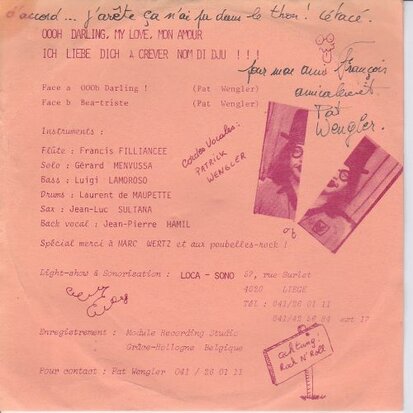 d'accord... j'arête ça n'ai pu dans le thon! Céfacé.
OOOH DARLING, MY LOVE, MON AMOUR
ICH LIEBE DICH A CREVER NOM DI DJU !!!
pour mon ami François
amicalement
Pat
Wengler.
Face a OOOh Darling ! (Pat Wengler)
Face b Bea-triste (Pat Wengler)
Instruments :
Cordes Vocales:
PATRICK
WENGLER
Flûte : Francis FILLIANCEE
Solo : Gérard MENVUSSA
Bass : Luigi LAMOROSO
Drums : Laurent de MAUPETTE
Sax : Jean-Luc SULTANA
Back vocal : Jean-Pierre HAMIL
Spécial merci à MARC WERTZ et aux poubelles-rock !
Light-show & Sonorisation : LOCA - SONO 57, rue Surlet
4020 LIEGE
Tél : 041/26 01 11
041/42 56 84 ext 17
Enregistrement : Module Recording Studio
Grâce-Hollogne Belgique
achtung!
Rock N' Roll
Pour contact : Pat Wengler 041 / 26 01 11